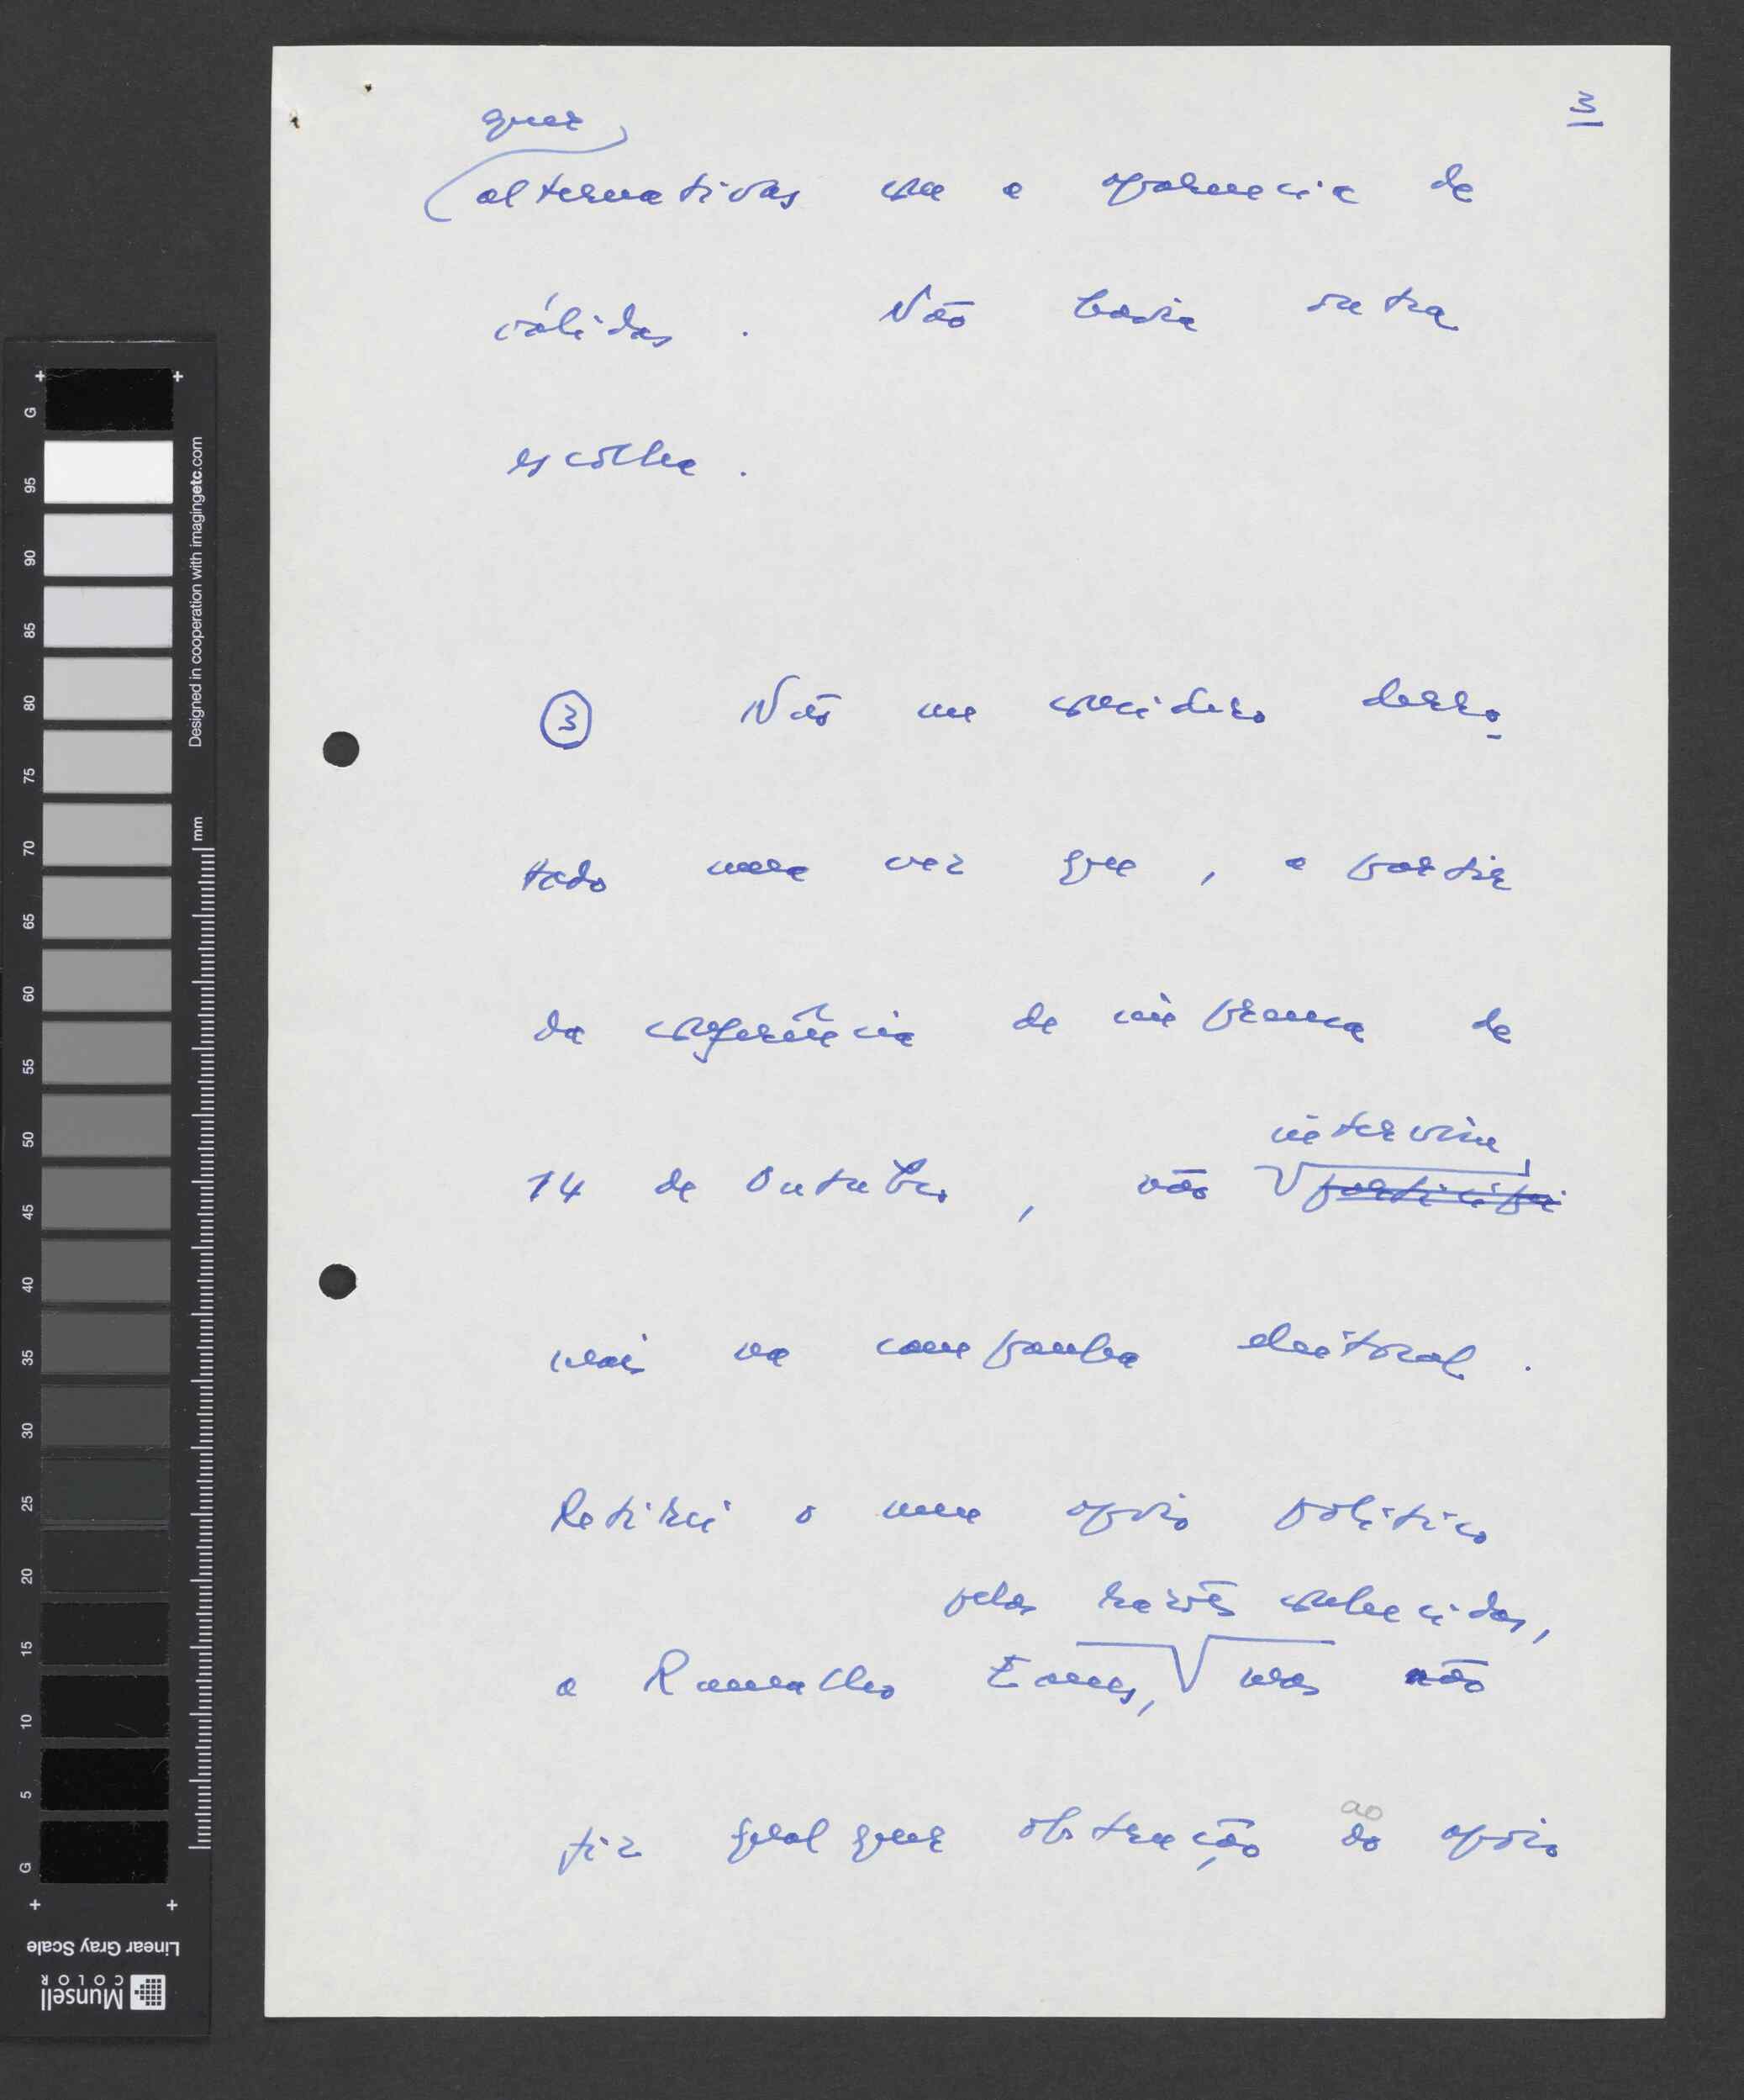 3
quer
alternativas com a aparência de
válidas . Não havia outra
escolha .
③ Não me considero derro
tado uma vez que , a partir
da conferência de imprensa de
intervim
14 de Outubro , não participei
mais na campanha eleitoral .
Retirei o meu apoio político
pelas razões conhecidas,
a Ramalho Eanes, mas não
fiz qualquer obstrução do apoio
ao
G 95 90 85 80 75 70 65 60 55 50 45 40 35 30 25 20 15 10 5 G
Designed in cooperation with imagingetc.com
mm
Linear Gray Scale
Munsell
COLOR